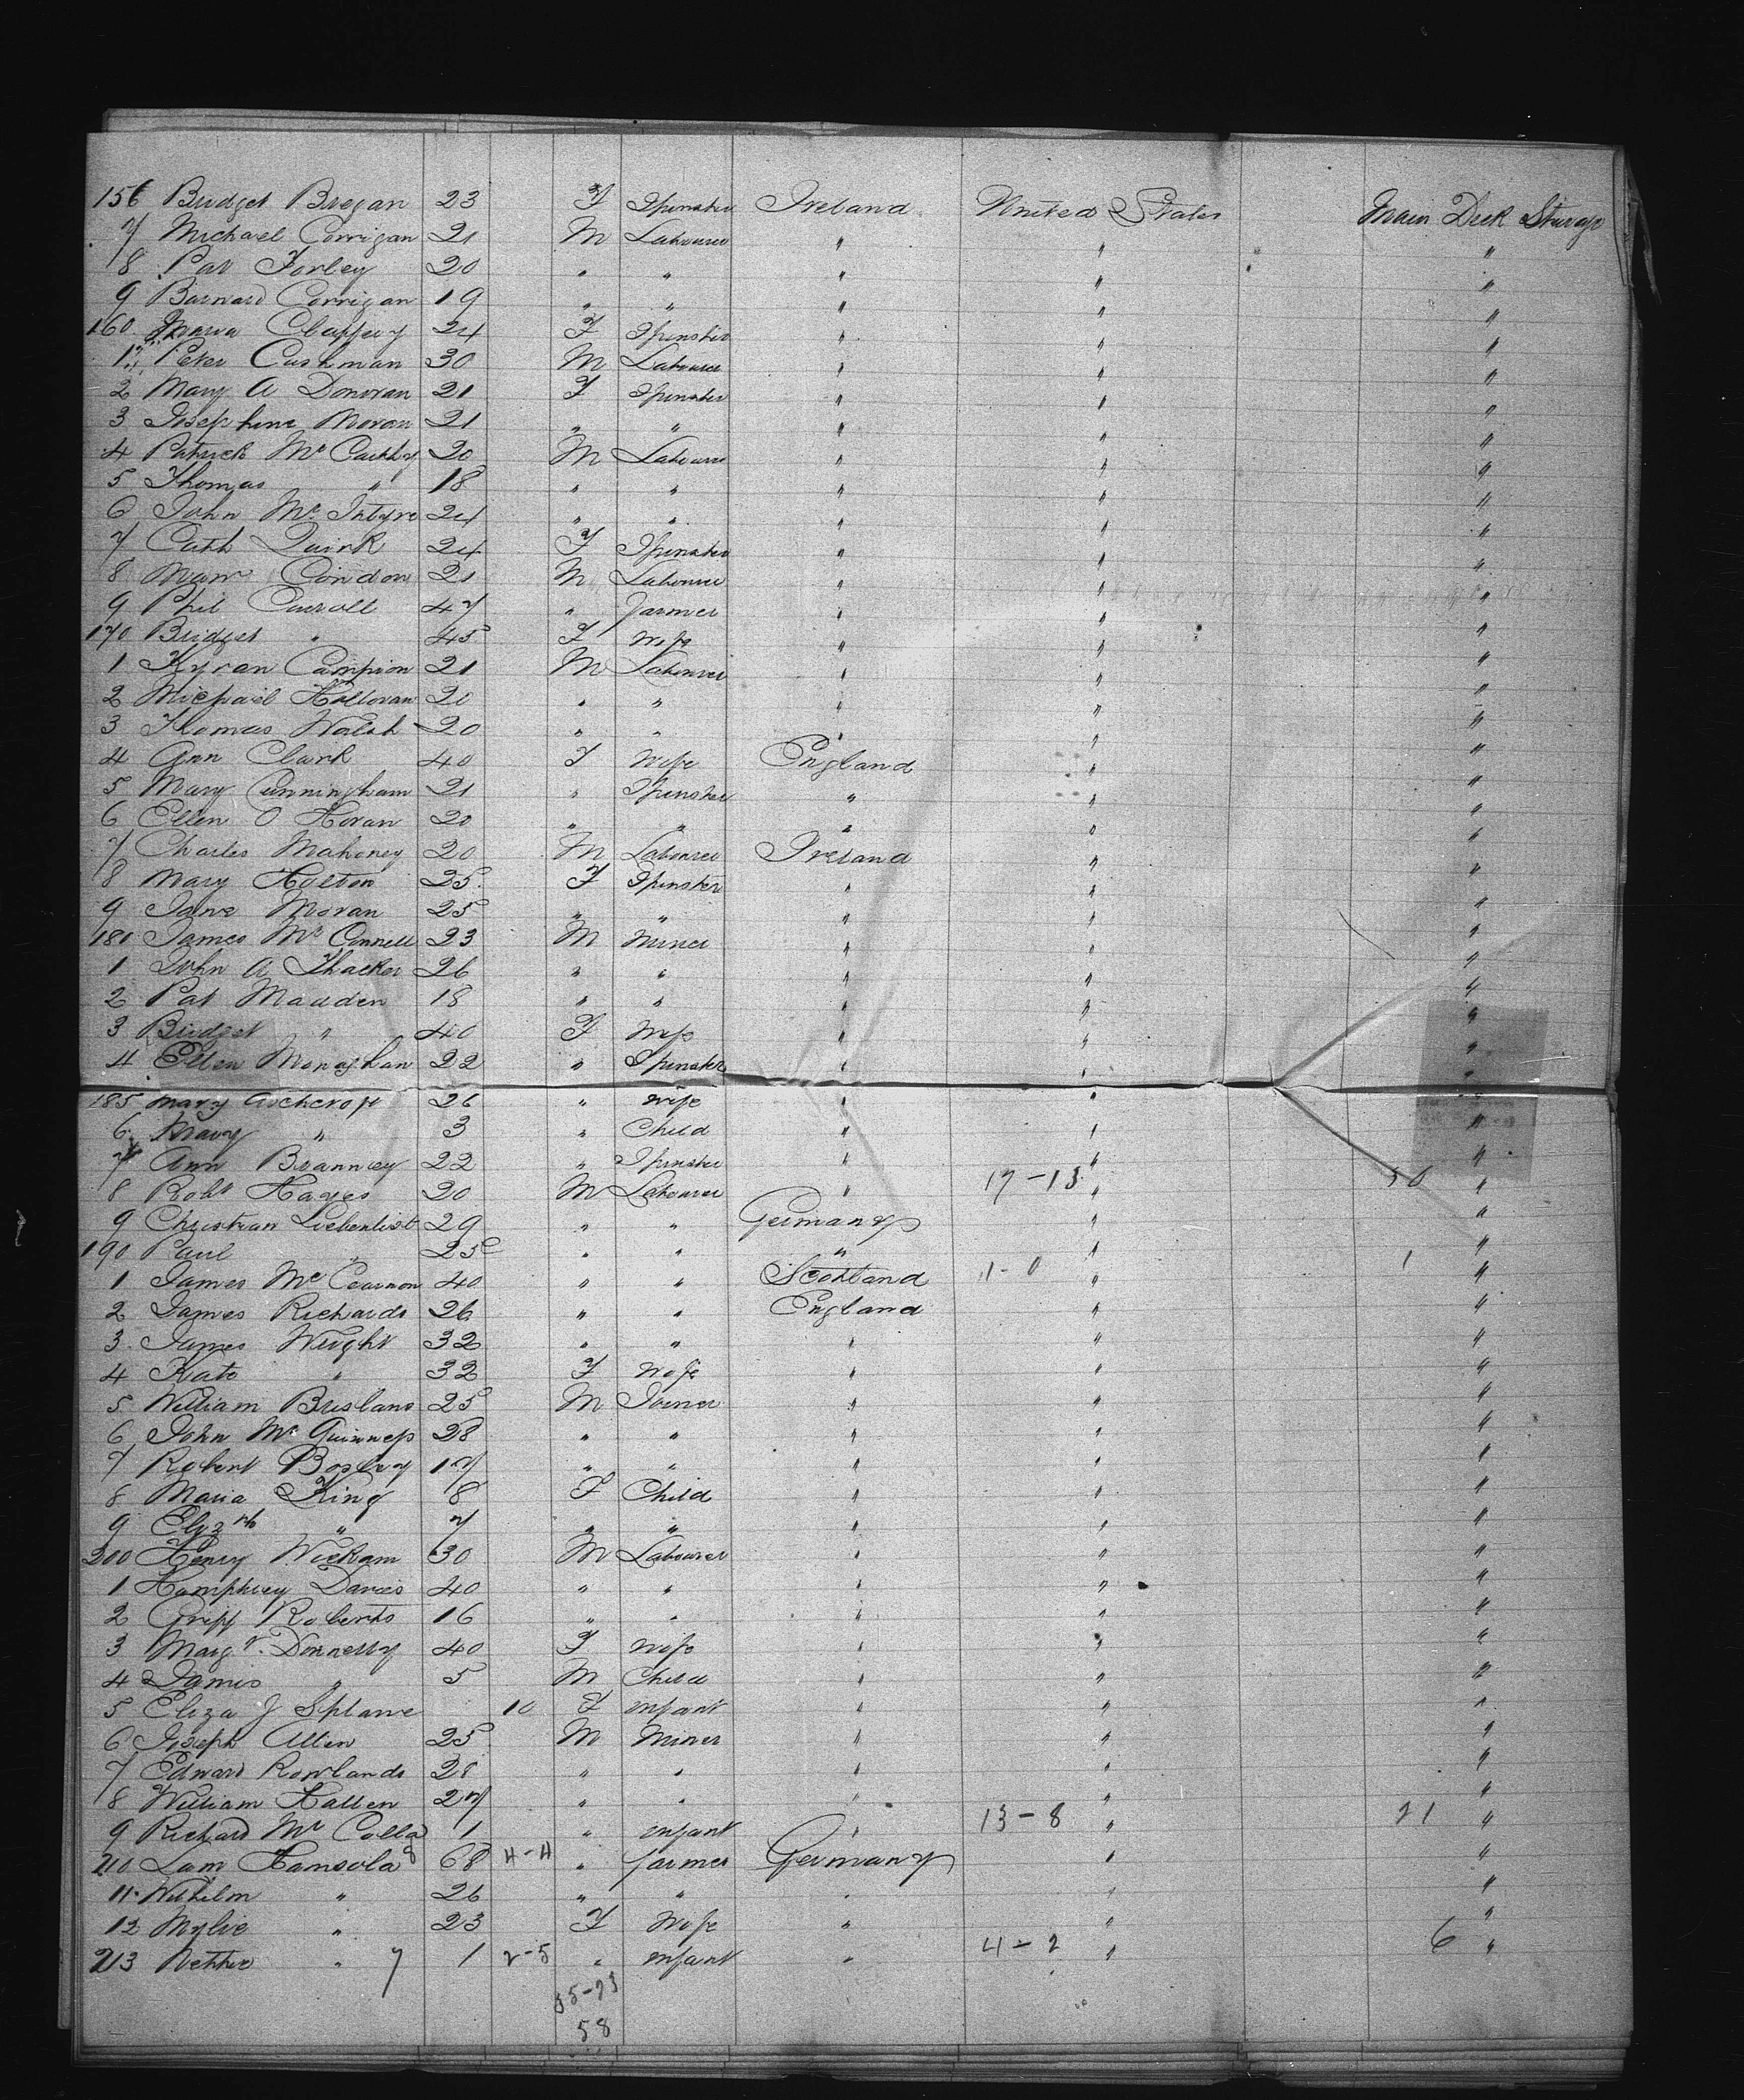 156 Bridget Bregan 23 F Spinster Ireland United States Main Deck Steerage
7 Michael Corrigan 21 M Labourer " " "
8 Pat Forley 20 " " " " "
9 Barnard Corrigan 19 " " " " "
160 Maria Claffey 24 F Spinster " " "
1 Peter Cushman 30 M Labourer " " "
2 Mary A Donovan 21 F Spinster " " "
3 Josephine Moron 21 " " " " "
4 Patrick Mc Carthy 20 M Labourer " " "
5 Thomas " 18 " " " " "
6 John Mc Intyre 24 " " " " "
7 Cath Quirk 24 F Spinster " " "
8 Condon 21 M Labourer " " "
9 Phil Carroll 47 " Farmer " " "
170 Bridget " 45 F Wife " " "
1 Kyran Campion 21 M Labourer " " "
2 Michael Holloran 20 " " " " "
3 Thomas Walsh 20 " " " " "
4 Ann Clark 40 F Wife England " "
5 Mary Cunningham 21 " Spinster " " "
6 Ellen O Horan 20 " " " " "
7 Charles Mahoney 20 M Labourer Ireland " "
8 Mary Holton 25 F Spinster " " "
9 Jane Moran 25 " " " " "
180 James Mc Connell 23 M Miner " " "
1 John A Thacker 26 " " " " "
2 Pat Madden 18 " " " " "
3 Bridget " 40 F Wife " " "
4 Ellen Monaghan 22 " Spinster " " "
185 Mary Ashcroft 26 " Wife " " "
6 Mary " 3 " Child " " "
7 Ann Branney 22 " Spinster " " "
8 Robt Hayes 20 M Labourer " 17-13 " 30 "
9 Christian Liebentist 29 " " Germany " "
190 Paul " 25 " " " " 1 "
1 James Mc Cearnon 40 " " Scotland 1-0 " "
2 James Richards 26 " " England " "
3 James Wright 32 " " " " "
4 Kate " 32 F Wife " " "
5 William Brisland 25 M Joiner " " "
6 John Mc Guinness 28 " " " " "
7 Robert Bosley 17 " " " " "
8 Maria King 8 F Child " " "
9 Elizth " 7 " " " " "
200 Henry Wickam 30 M Labourer " " "
1 Humphrey Davies 40 " " " " "
2 Griff Roberts 16 " " " " "
3 Margt Donnelly 40 F Wife " " "
4 James " 5 M Child " " "
5 Eliza J Splane 10 F Infant " " "
6 Joseph Allen 25 M Miner " " "
7 Edward Rowlands 28 " " " " "
8 William Hallen 27 " " " " "
9 Richard Mc Colla 1 " Infant " 13-8 " 21 "
210 Lam Hansola 68 4-4 " Farmer Germany " "
11 Wilhelm " 26 " " " " "
12 Mylie " 23 F Wife " " "
213 Nettie " 7 1 2-5 " Infant " 4-2 " 6 "
35-23
58